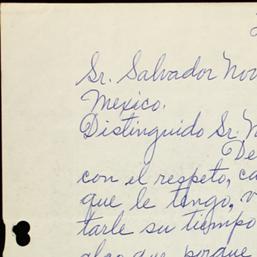 Sr. Salvador Nov
Mexico.
Distinguido Sr. N
De
con el respeto, ca
que le tengo, v
tarle su tiempo
algo que porque